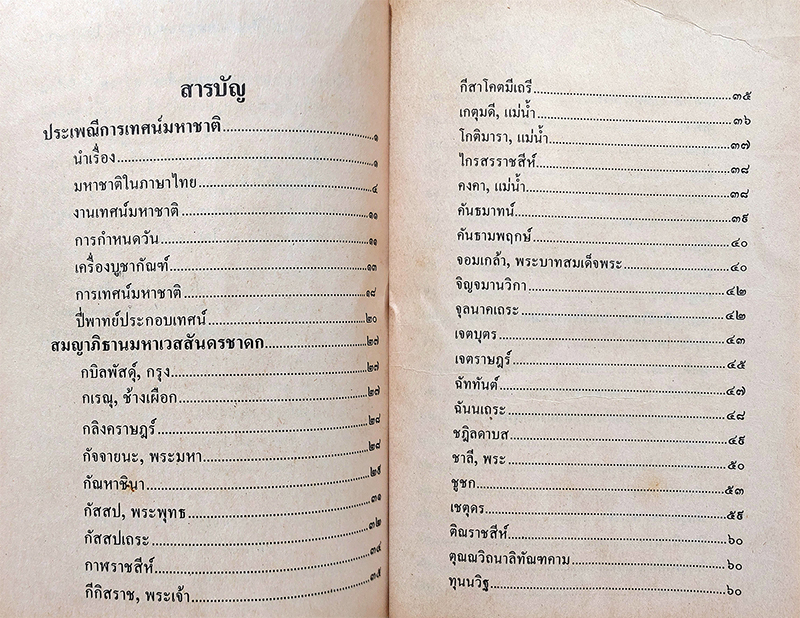 สารบัญ
ประเพณีการเทศน์มหาชาติ ๑
นำเรื่อง ๑
มหาชาติในภาษาไทย ๔
งานเทศน์มหาชาติ ๑๑
การกำหนดวัน ๑๑
เครื่องบูชากัณฑ์ ๑๓
การเทศน์มหาชาติ ๑๘
ปี่พาทย์ประกอบเทศน์ ๒๐
สมญาภิธานมหาเวสสันดรชาดก ๒๗
กบิลพัสดุ์, กรุง ๒๗
กเรณุ, ช้างเผือก ๒๗
กลิงคราษฎร์ ๒๘
กัจจายนะ, พระมหา ๒๘
กัณหาชินา ๒๙
กัสสป, พระพุทธ ๓๑
กัสสปเถระ ๓๒
กาฬราชสีห์ ๓๔
กีกิสราช, พระเจ้า ๓๕
กีสาโคตมีเถรี ๓๕
เกตุมดี, แม่น้ำ ๓๖
โกติมารา, แม่น้ำ ๓๗
ไกรสรราชสีห์ ๓๘
คงคา, แม่น้ำ ๓๘
คันธมาทน์ ๓๙
คันธามพฤกษ์ ๔๐
จอมเกล้า, พระบาทสมเด็จพระ ๔๐
จิญจมานวิกา ๔๒
จุลนาคเถระ ๔๒
เจตบุตร ๔๓
เจตราษฎร์ ๔๕
ฉัททันต์ ๔๗
ฉันนเถระ ๔๘
ชฎิลดาบส ๔๙
ชาลี, พระ ๕๐
ชูชก ๕๓
เชตุดร ๕๙
ติณราชสีห์ ๖๐
ตุณณวิถนาลิทัณฑคาม ๖๐
ทุนนวิฐ ๖๐